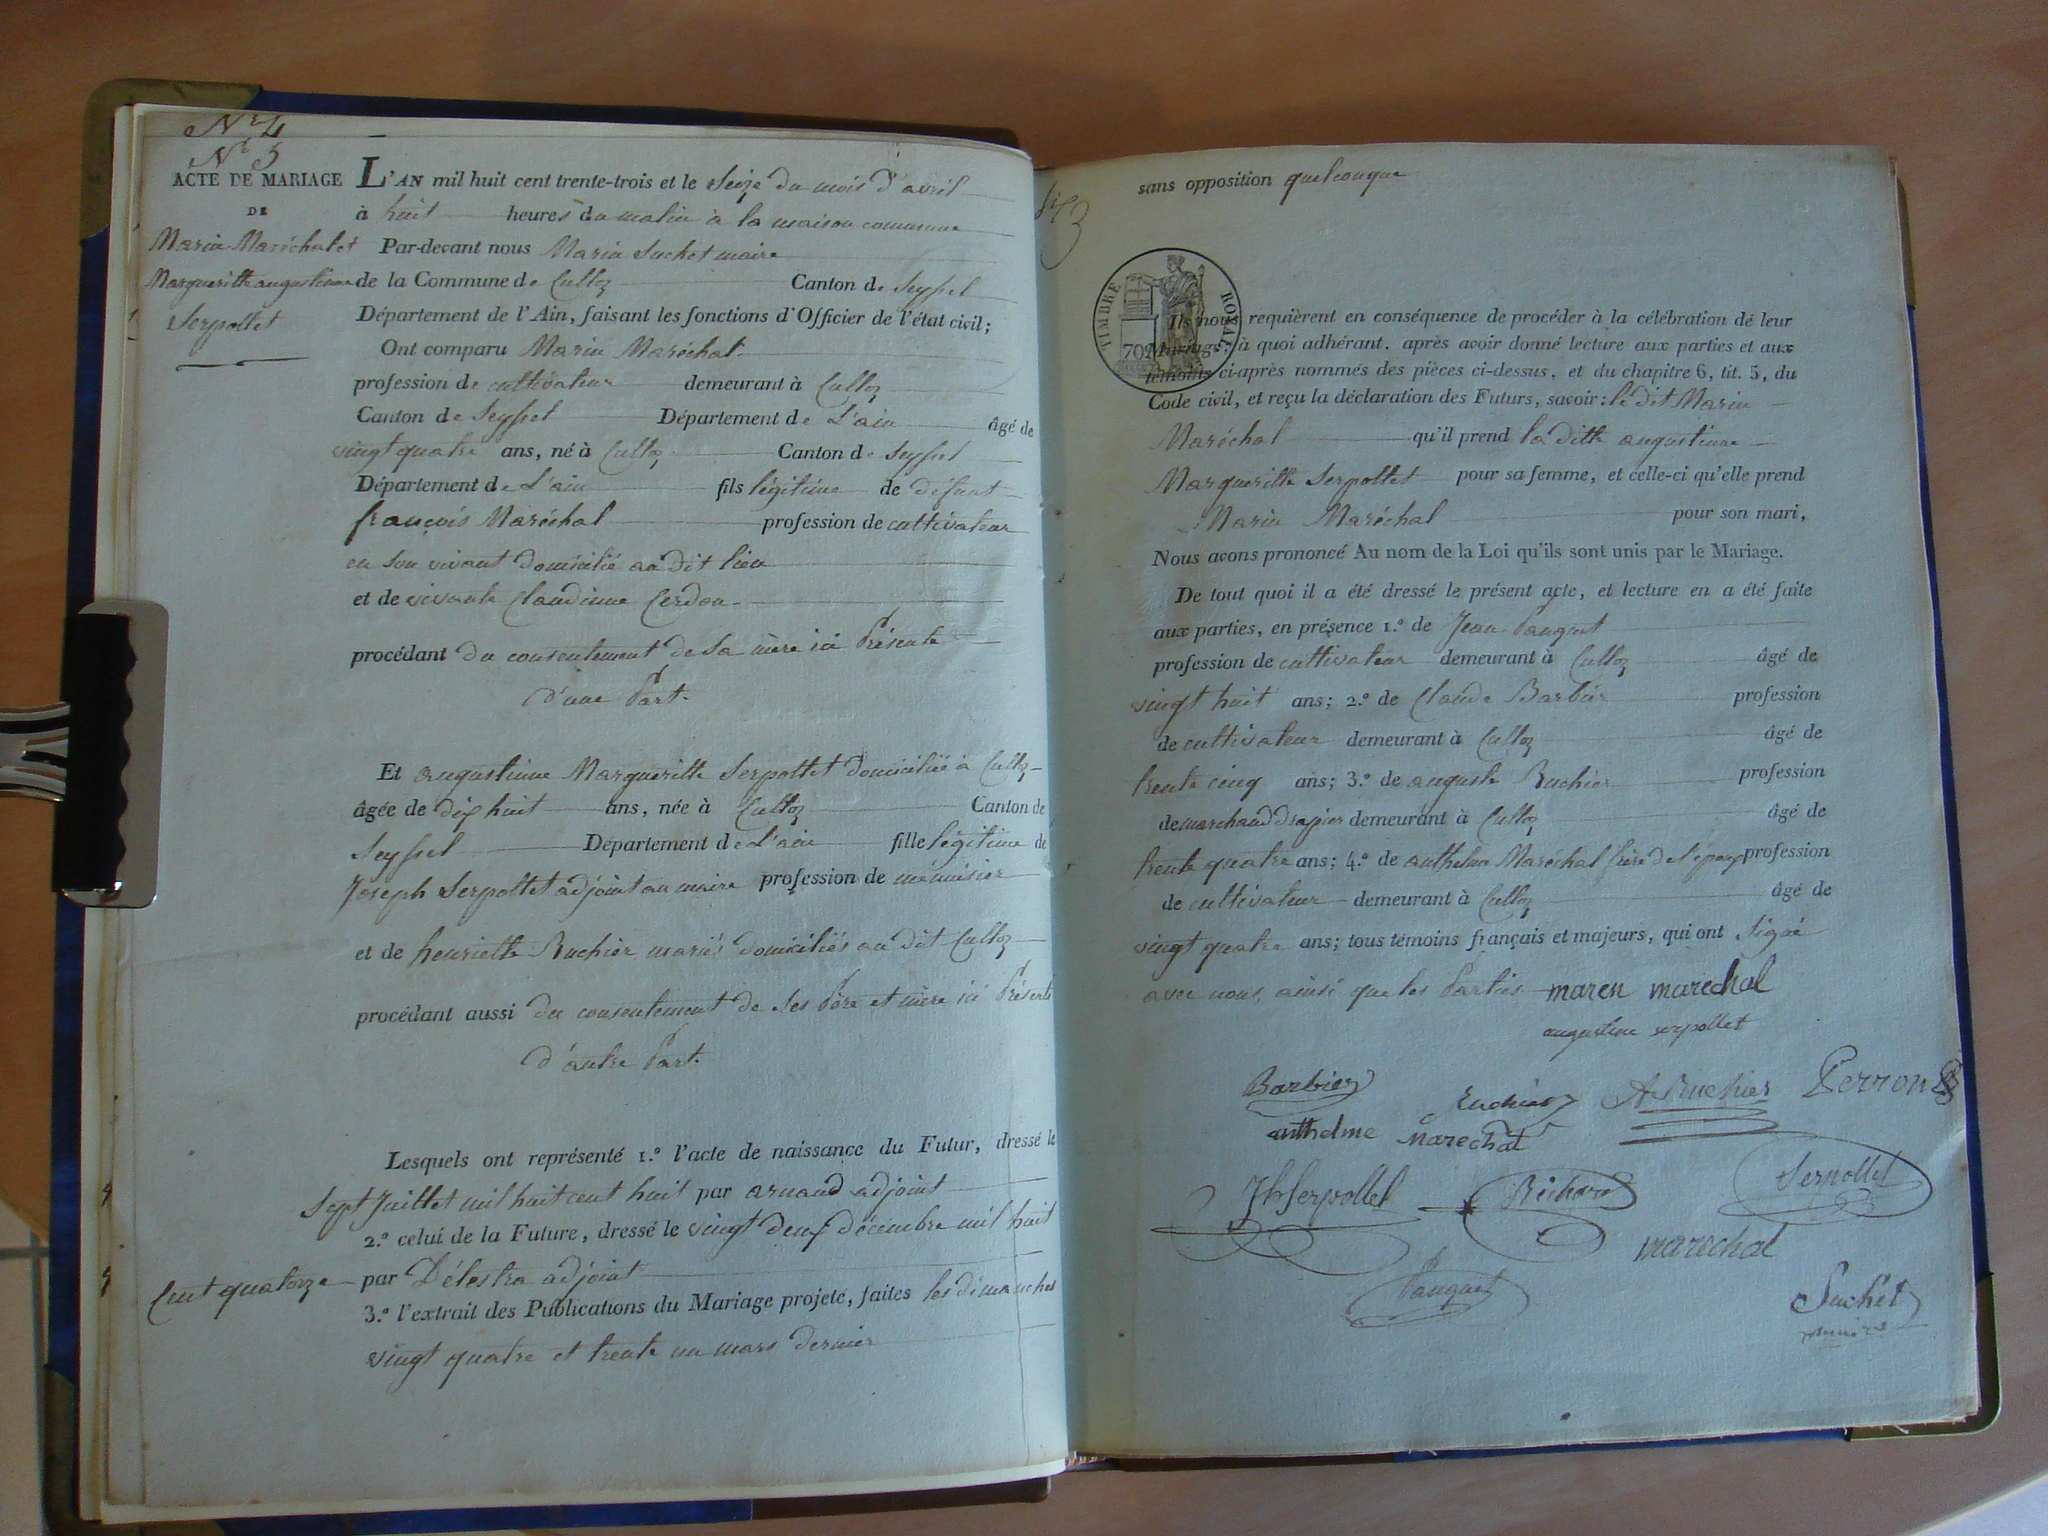 N° 4
N° 5
ACTE DE MARIAGE
DE
Marin Maréchal et
Margueritte augustinne
Serpollet
L'AN mil huit cent trente-trois et le Seize du mois d'avril
à huit heures du matin à la maison commune
Par-devant nous Marin Suchet maire
de la Commune de Culloz Canton de Seyssel
Département de l'Ain, faisant les fonctions d'Officier de l'état civil;
Ont comparu Marin Maréchal
profession de cultivateur demeurant à Culloz
Canton de Seyssel Département de L'ain âgé de
vingt quatre ans, né à Culloz Canton de Seyssel
Département de L'ain fils légitime de défunt
françois Maréchal profession de cultivateur
en son vivant domicilié au dit lieu
et de vivante Claudinne Cerdon
procédant du consentement de sa mère ici Présente
d'une Part.
Et augustinne Margueritte Serpollet domiciliée à Culloz
âgée de dix huit ans, née à Culloz Canton de
Seyssel Département de L'ain fille légitime de
Joseph Serpollet adjoint au maire profession de ménuisier
et de henriette Ruchier mariés domiciliés au dit Culloz
procédant aussi du consentement de ses Père et mère ici Présents
d'autre Part.
Lesquels ont représenté 1.° l'acte de naissance du Futur, dressé le
Sept Juillet mil huit cent huit par arnaud adjoint
2.° celui de la Future, dressé le vingt deux décembre mil huit
Cent quatorze par Délestra adjoint
3.° l'extrait des Publications du Mariage projeté, faites les dimanches
vingt quatre et trente un mars dernier
sans opposition quelconque
TIMBRE ROYAL
70
Ils nous requièrent en conséquence de procéder à la célébration de leur
Mariage; à quoi adhérant. après avoir donné lecture aux parties et aux
témoins ci-après nommés des pièces ci-dessus, et du chapitre 6, tit. 5, du
Code civil, et reçu la déclaration des Futurs, savoir: le dit Marin
Maréchal qu'il prend la ditte augustinne
Margueritte Serpollet pour sa femme, et celle-ci qu'elle prend
Marin Maréchal pour son mari,
Nous avons prononcé Au nom de la Loi qu'ils sont unis par le Mariage.
De tout quoi il a été dressé le présent acte, et lecture en a été faite
aux parties, en présence 1.° de Jean Pauguet
profession de cultivateur demeurant à Culloz âgé de
vingt huit ans; 2.° de Claude Barbier profession
de cultivateur demeurant à Culloz âgé de
trente cinq ans; 3.° de auguste Ruchier profession
de marchand drapier demeurant à Culloz âgé de
trente quatre ans; 4.° de anthelme Maréchal frère de l'époux profession
de cultivateur demeurant à Culloz âgé de
vingt quatre ans; tous témoins français et majeurs, qui ont signé
avec nous, ainsi que les Parties maren marechal
augustine serpollet
Barbier Ruchier A Ruchier Perron
anthelme marechal
Jh Serpollet Richard Serpollet
marechal
Pauguet
Suchet
maire